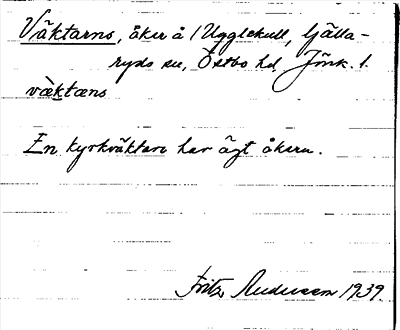 Väktarns, åker å 1 Ugglekull, Gälla-
ryds sn, Östbo hd, Jönk. l.
vàktæns
En kyrkväktare har ägt åkern.
Fritz Andersson 1939.